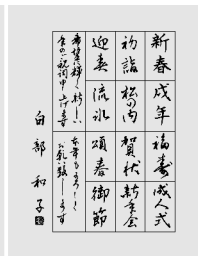 新春 戌年 福寿 成人式
初詣 松の内 賀状 新年会
迎春 流氷 頌春 御節
希望に輝く新しい
年のお祝詞申上げます
本年もよろしく
お願い致します
白部和子